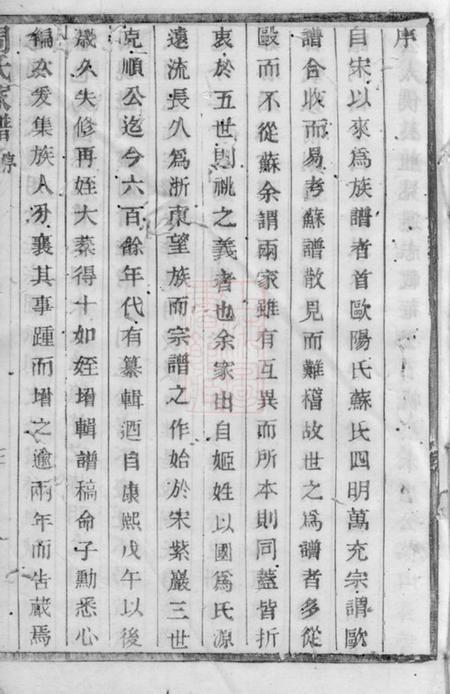 序
自宋以來爲族譜者首歐陽氏蘇氏四明萬充宗謂歐
譜合收而易考蘇譜散見而難稽故世之爲譜者多從
歐而不從蘇余謂兩家雖有互異而所本則同蓋皆折
衷於五世則祧之義者也余家出自姬姓以國爲氏源
遠流長久爲浙東望族而宗譜之作始於宋紫巖三世
克順公迄今六百餘年代有纂輯迺自康熙戊午以後
歲久失修再姪大棻得十如姪增輯譜稿命子勳悉心
編次爰集族人分襄其事踵而增之逾兩年而告蕆焉
周氏家譜 序